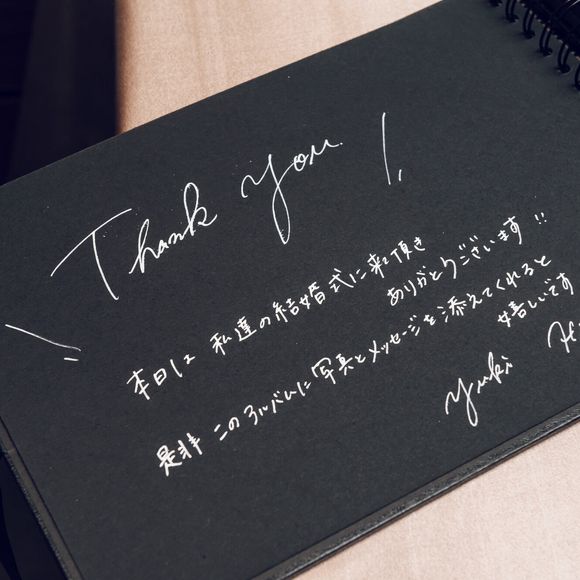 Thank you
本日は 私達の結婚式に来て頂き
ありがとうございます!!
是非 このアルバムに写真とメッセージを添えてくれると
嬉しいです
Yuki